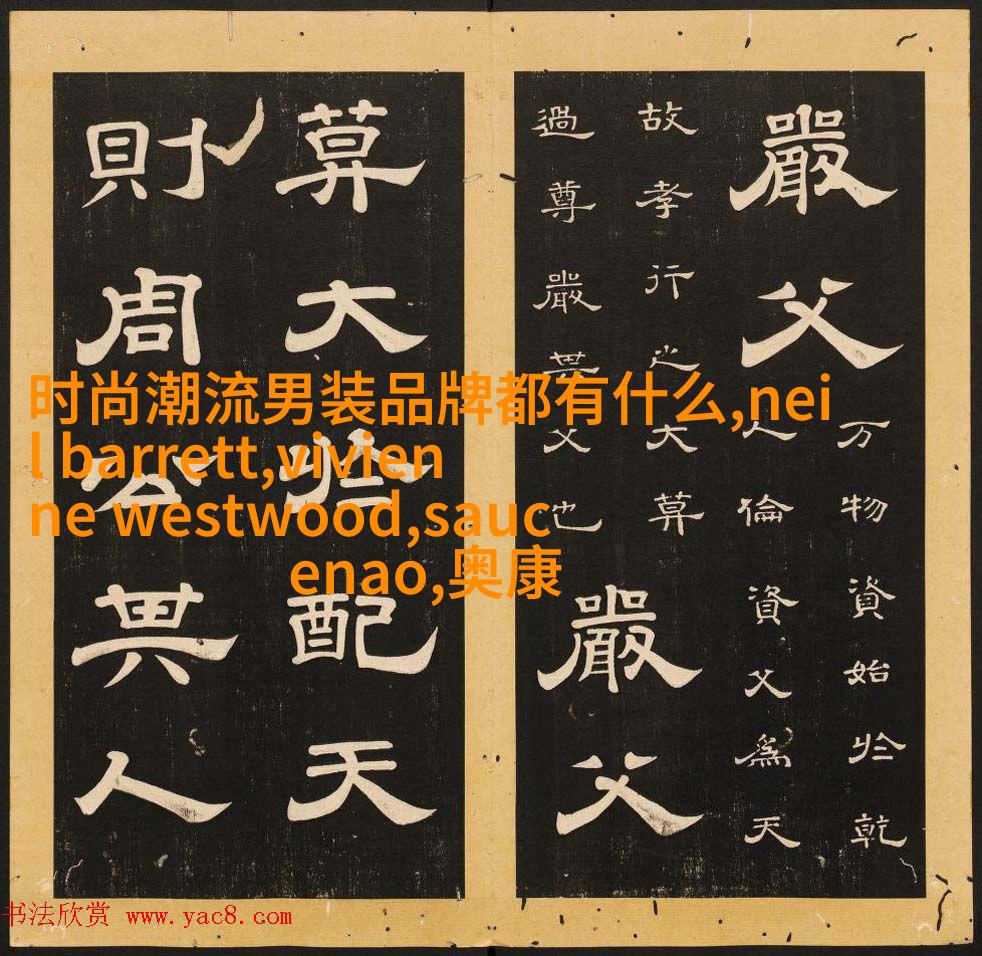 嚴父
万物資始於乾
人倫資父為天
故孝行之大莫
過尊嚴其父也
嚴父
莫大於配天
則周公其人
时尚潮流男装品牌都有什么,nei
l barrett,vivien
ne westwood,sauc
enao,奥康
书法欣赏 www.yac8.com